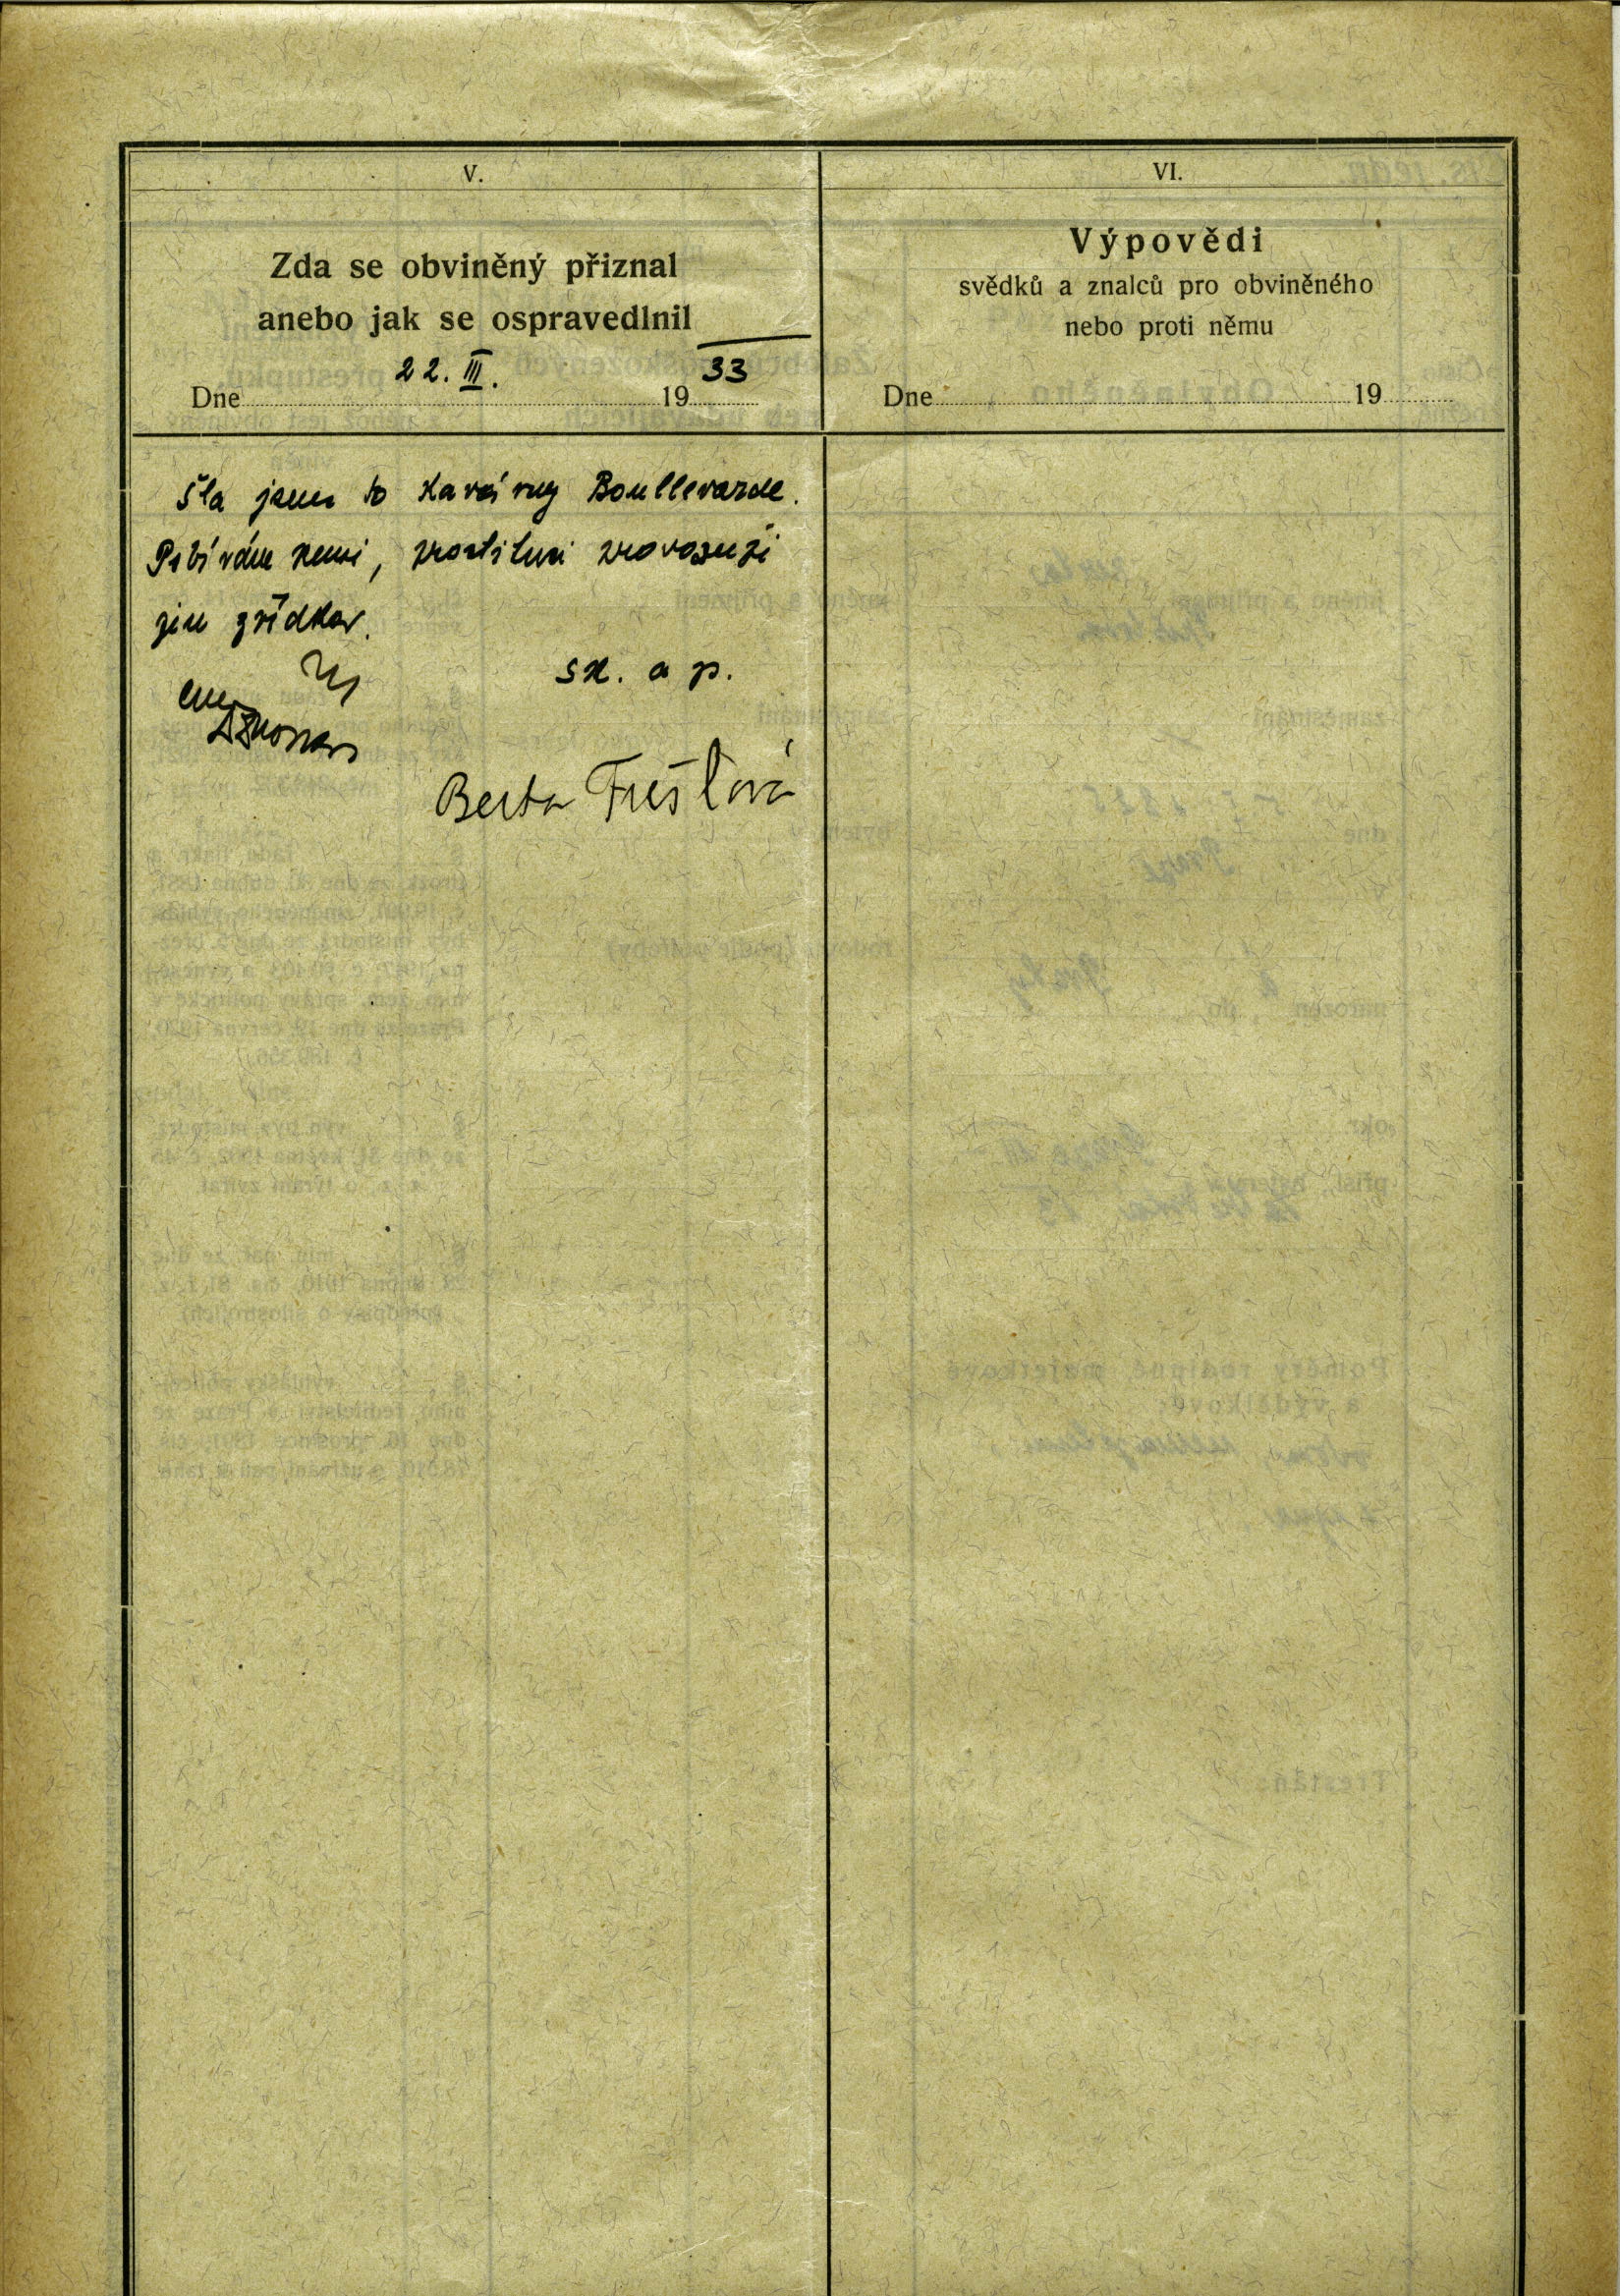 V.
Zda se obviněný přiznal
anebo jak se ospravedlnil
Dne 22. III. 1933
šla jsem do Kavárny Boullevarde.
Pobírám nemi, prostituci provozuji
jen zřídka.
sk. a p.
Berta Fušlová
VI.
Výpovědi
svědků a znalců pro obviněného
nebo proti němu
Dne 19